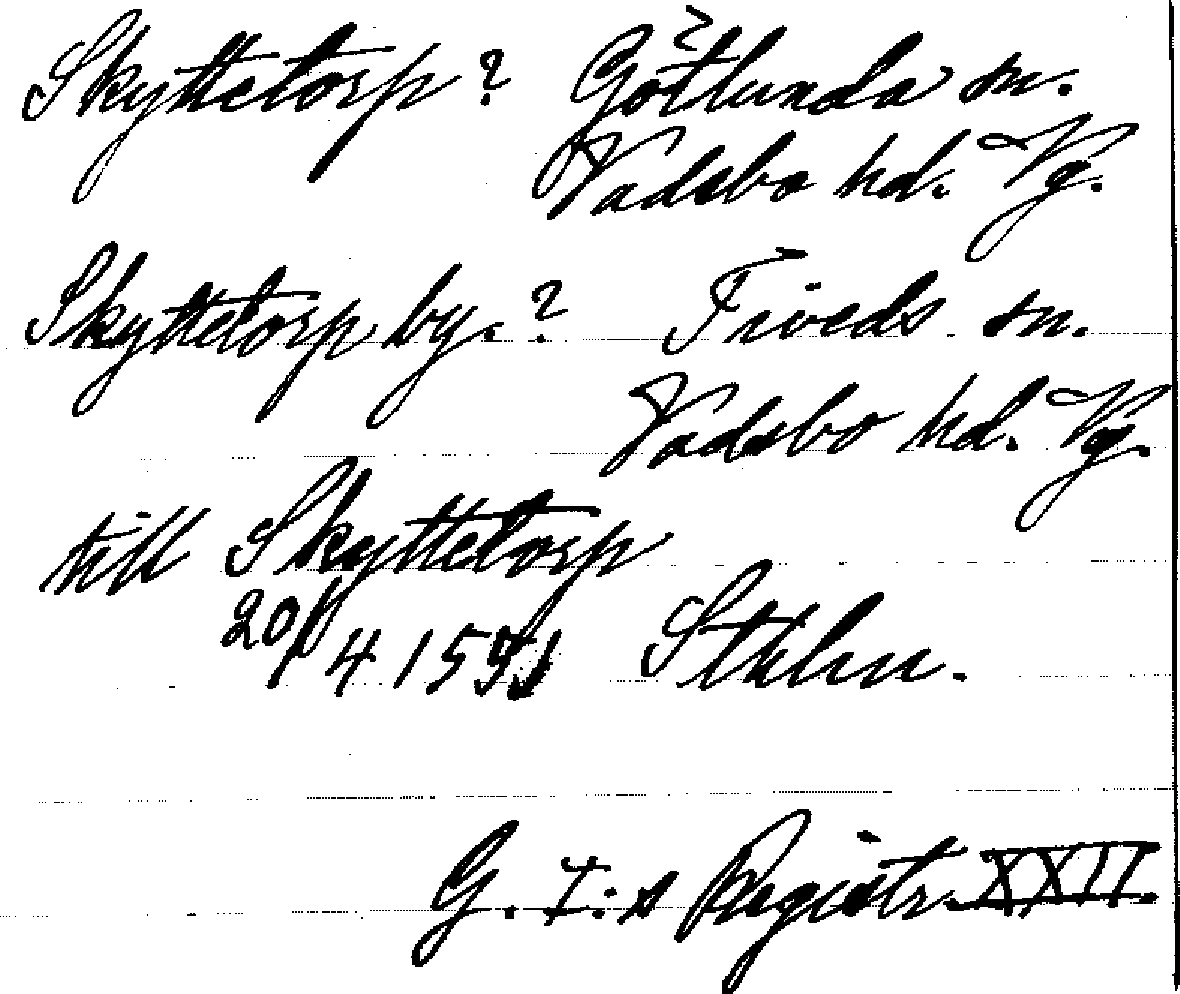 Skyttetorp? Götlunda sn.
Vadsbo hd. Vg.
Skyttetorp by.? Tiveds sn.
Vadsbo hd. Vg.
till Skyttetorp
20/4 1551 Sthlm.
G. I:s Registr. XXII.